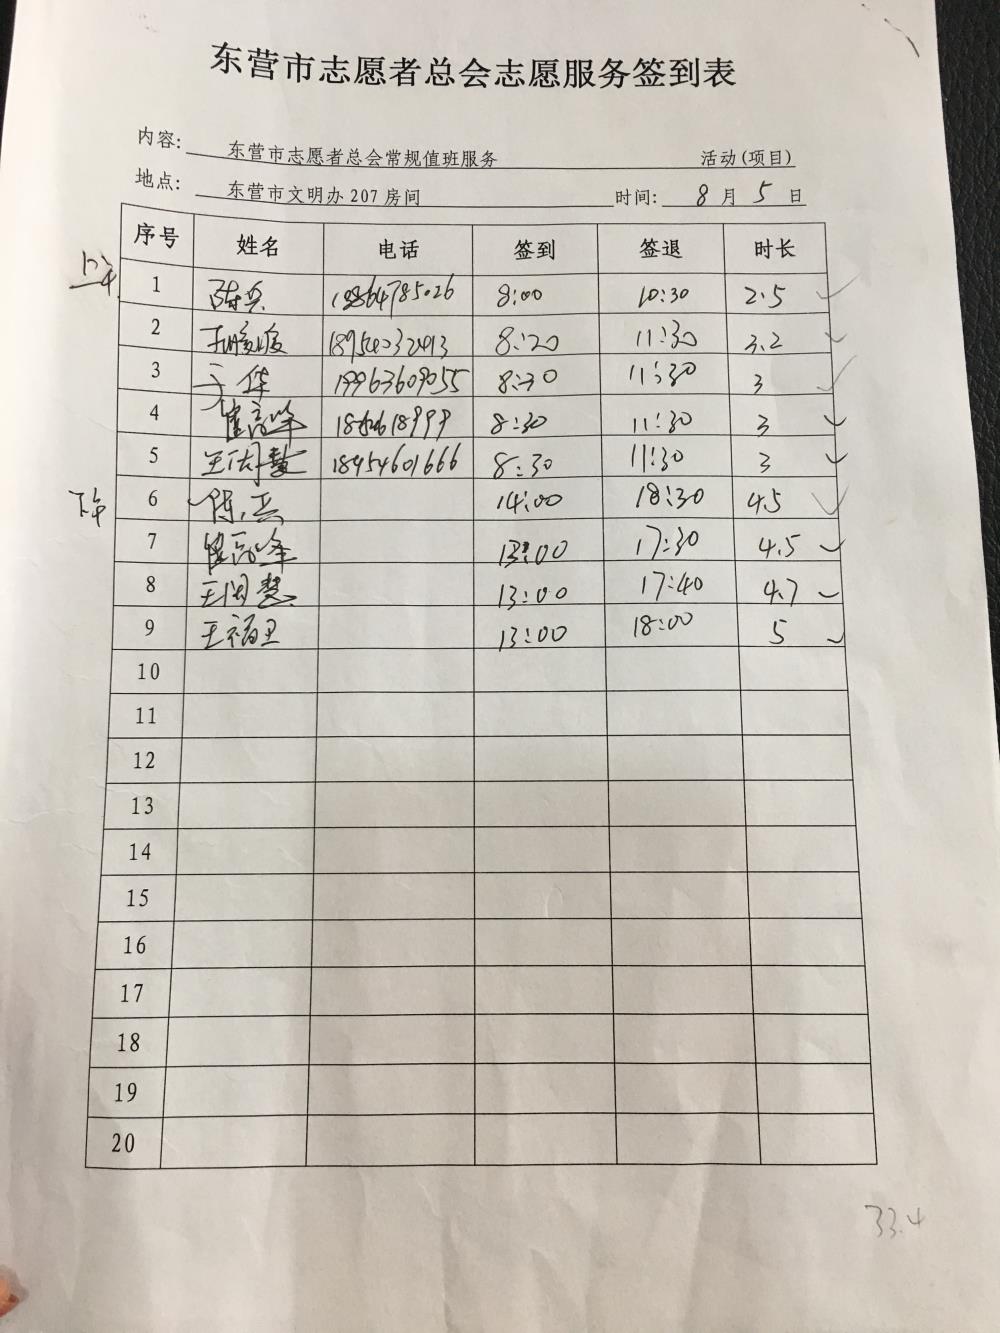 东营市志愿者总会志愿服务签到表
内容: 东营市志愿者总会常规值班服务 活动(项目)
地点: 东营市文明办207房间 时间: 8月5日
序号 姓名 电话 签到 签退 时长
上午
1 陈兵 18864785026 8:00 10:30 2.5
2 8:20 11:30 3.2
3 华 19963609055 8:30 11:30 3
4 崔高峰 8:30 11:30 3
5 王闰慧 18954601666 8:30 11:30 3
下午
6 陈兵 14:00 18:30 4.5
7 崔高峰 13:00 17:30 4.5
8 王闰慧 13:00 17:40 4.7
9 王福卫 13:00 18:00 5
10
11
12
13
14
15
16
17
18
19
20
33.4